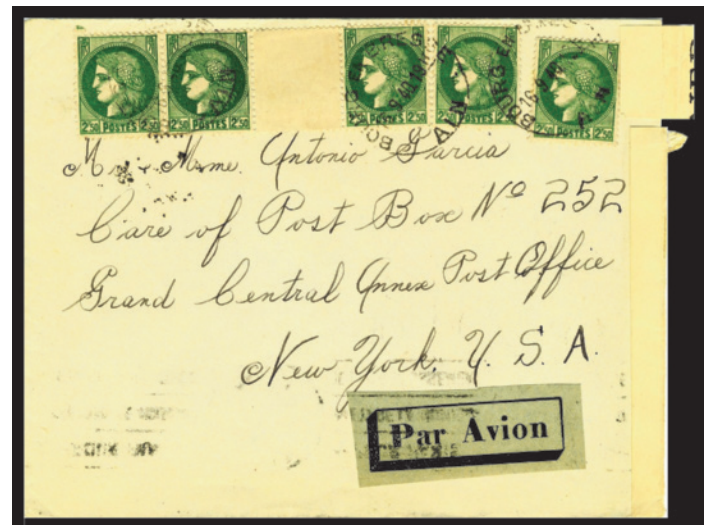 2,50 POSTES 2,50 2,50 POSTES 2,50 2,50 POSTES 2,50 2,50 POSTES 2,50 2,50 POSTES 2,50
BOURG EN BRESSE
AIN
Mr. Mme. Antonio Garcia
Care of Post Box Nº 252
Grand Central Annex Post Office
New York, U. S. A.
Par Avion